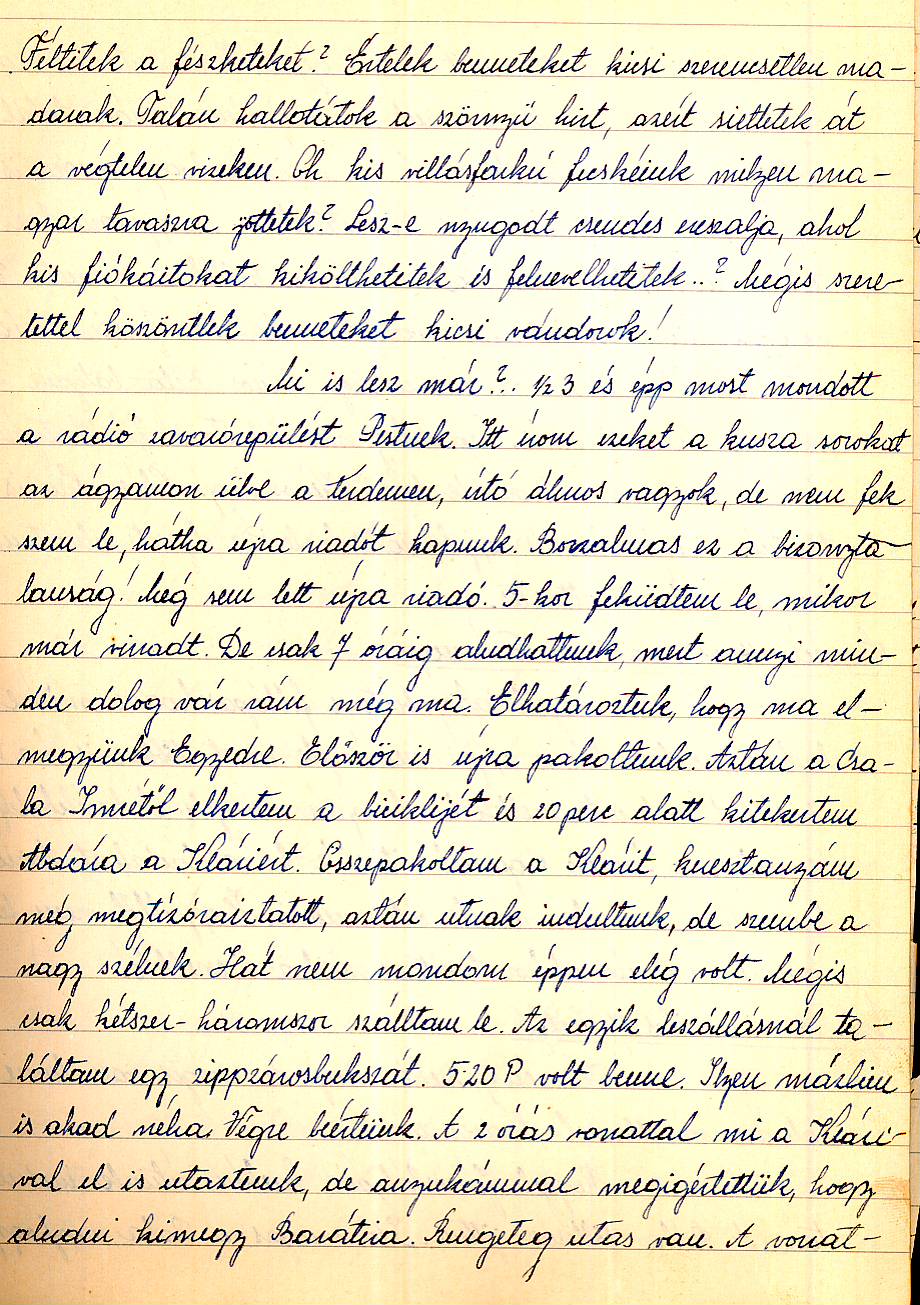 Féltitek a fészketeket? Értelek benneteket kicsi szerencsétlen ma-
darak. Talán hallottátok a szörnyű hírt, azért siettetek át
a végtelen vizeken. Oh kis villásfarkú fecskéink milyen ma-
gyar tavaszra jöttetek? Lesz-e nyugodt csendes ereszalja, ahol
kis fiókáitokat kikölthetitek is felnevelhetitek..? Mégis szere-
tettel köszöntlek benneteket kicsi vándorok!
Mi is lesz már?.. 1/2 3 és épp most mondott
a rádió zavarórepülést Pestnek. Itt írom ezeket a kusza sorokat
az ágyamon ülve a térdemen, írtó álmos vagyok, de nem fek
szem le, hátha újra riadót kapunk. Borzalmas ez a bizonyta-
lanság! Még sem lett újra riadó. 5-kor feküdtem le, mikor
már virradt. De csak 7 óráig aludhattunk, mert annyi min-
den dolog vár rám még ma. Elhatároztuk, hogy ma el-
megyünk Egyedre. Először is újra pakoltunk. Aztán a Csa-
ba Imrétől elkértem a biciklijét és 20 perc alatt kitekertem
Abdára a Kláriért. Összepakoltam a Klárit, keresztanyám
még megtízóraiztatott, aztán utnak indultunk, de szembe a
nagy szélnek. Hát nem mondom éppen elég volt. Mégis
csak kétszer-háromszor szálltam le. Az egyik leszállásnál ta-
láltam egy zippzárosbukszát. 5·20 P volt benne. Ilyen mázlim
is akad néha. Végre beértünk. A 2 órás vonattal mi a Klári-
val el is utaztunk, de anyukámmal megigértettük, hogy
aludni kimegy Barátira. Rengeteg utas van. A vonat-